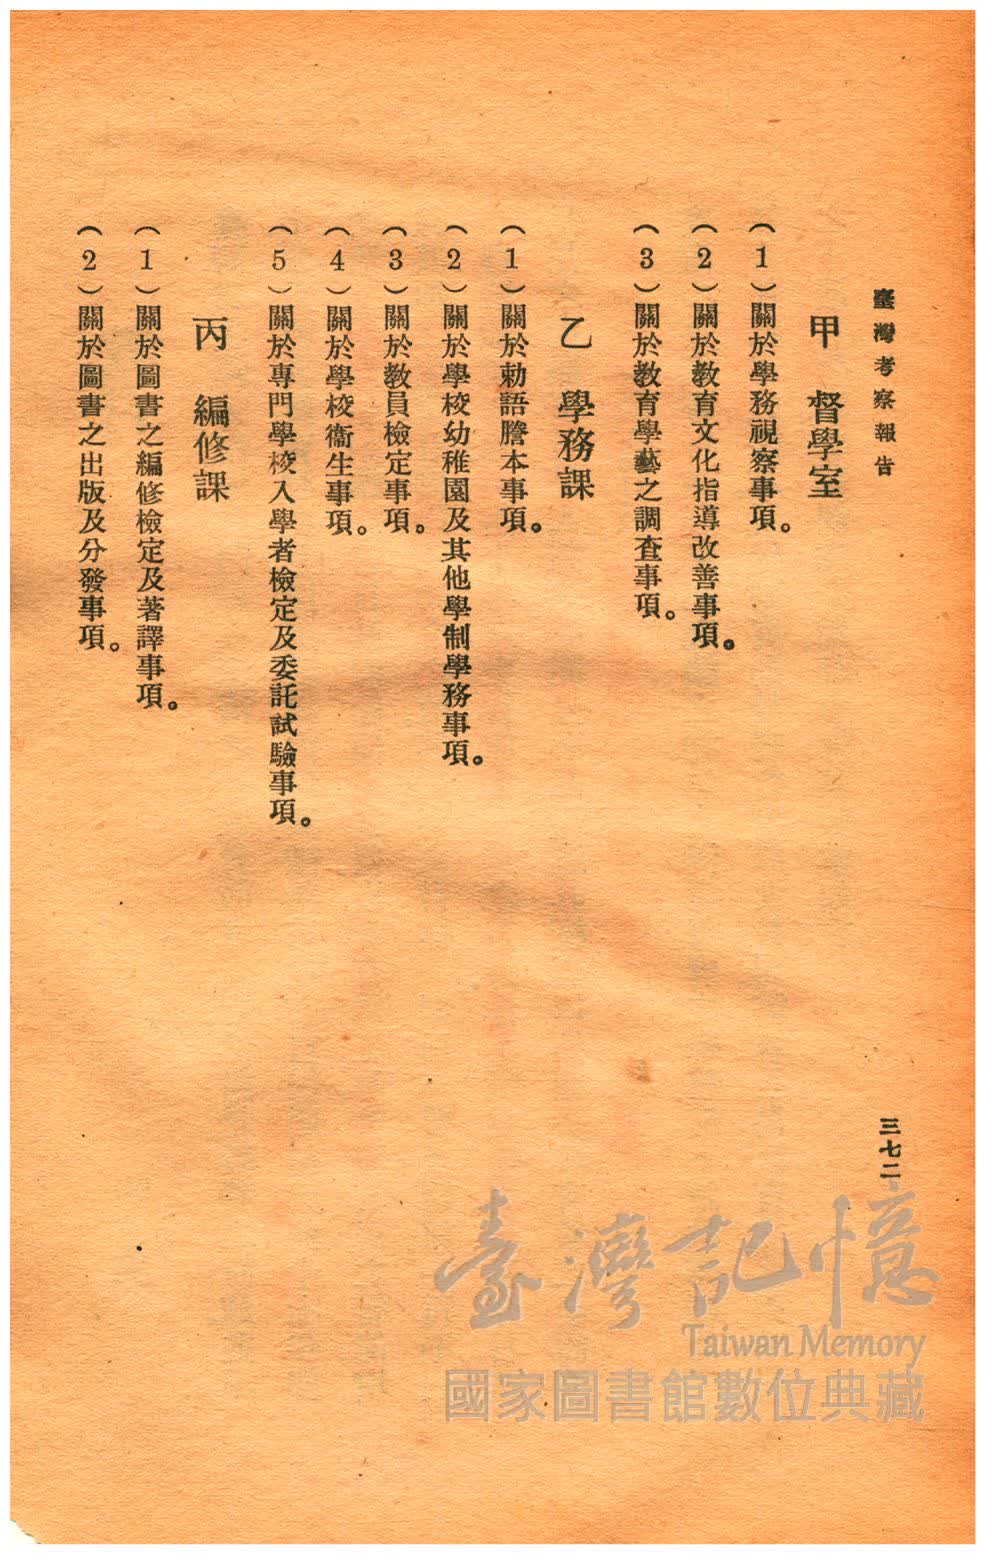 臺灣考察報告
三七二
甲　督學室
(1)關於學務視察事項。
(2)關於教育文化指導改善事項。
(3)關於教育學藝之調查事項。
乙　學務課
(1)關於勅語謄本事項。
(2)關於學校幼稚園及其他學制學務事項。
(3)關於教員檢定事項。
(4)關於學校衞生事項。
(5)關於專門學校入學者檢定及委託試驗事項。
丙　編修課
(1)關於圖書之編修檢定及著譯事項。
(2)關於圖書之出版及分發事項。
臺灣記憶
Taiwan Memory
國家圖書館數位典藏